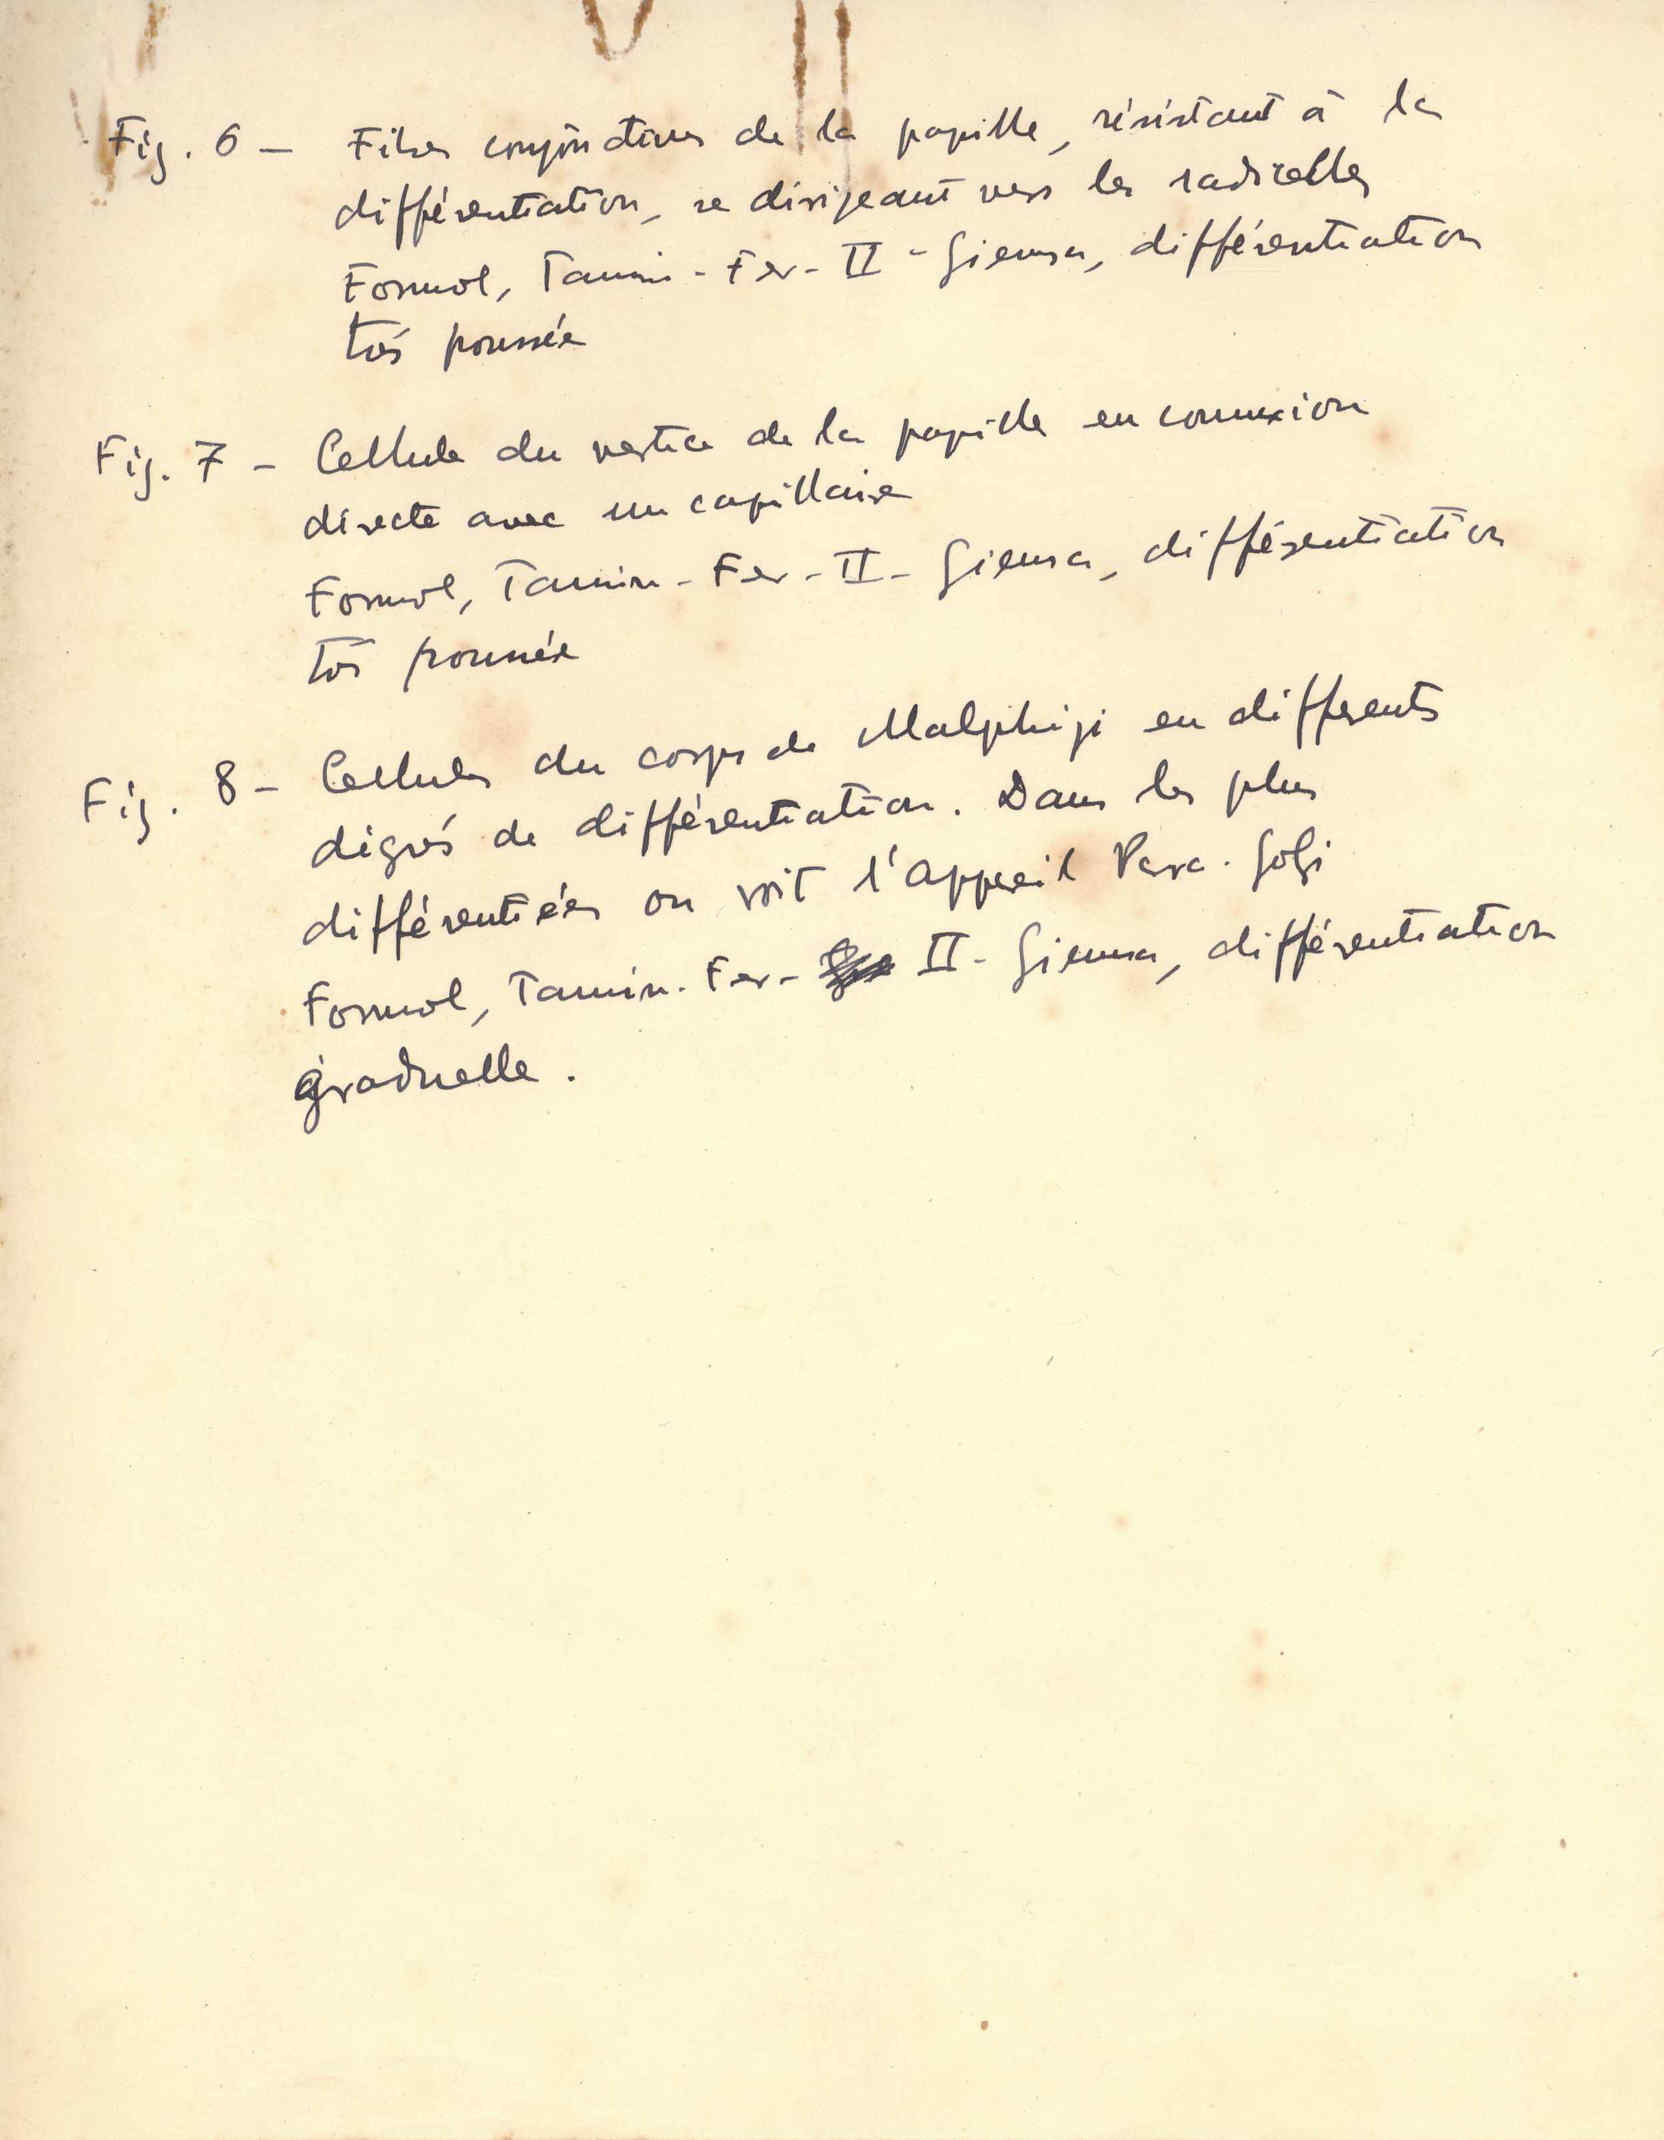 Fig. 6 — Fibres conjonctives de la papille, résistant à la
différentiation, se dirigeant vers les radicelles
Formol, Tannin - Fer - II - Giemsa, différentiation
très poussée
Fig. 7 - Cellule du vertice de la papille en connexion
directe avec un capillaire
Formol, Tannin - Fer - II - Giemsa, différentiation
très poussée
Fig. 8 - Cellules du corps de Malphigi en differents
dégrés de différentiation. Dans les plus
différentiées on voit l'appareil Para. Golgi
Formol, Tannin. Fer - II - Giemsa, différentiation
graduelle.